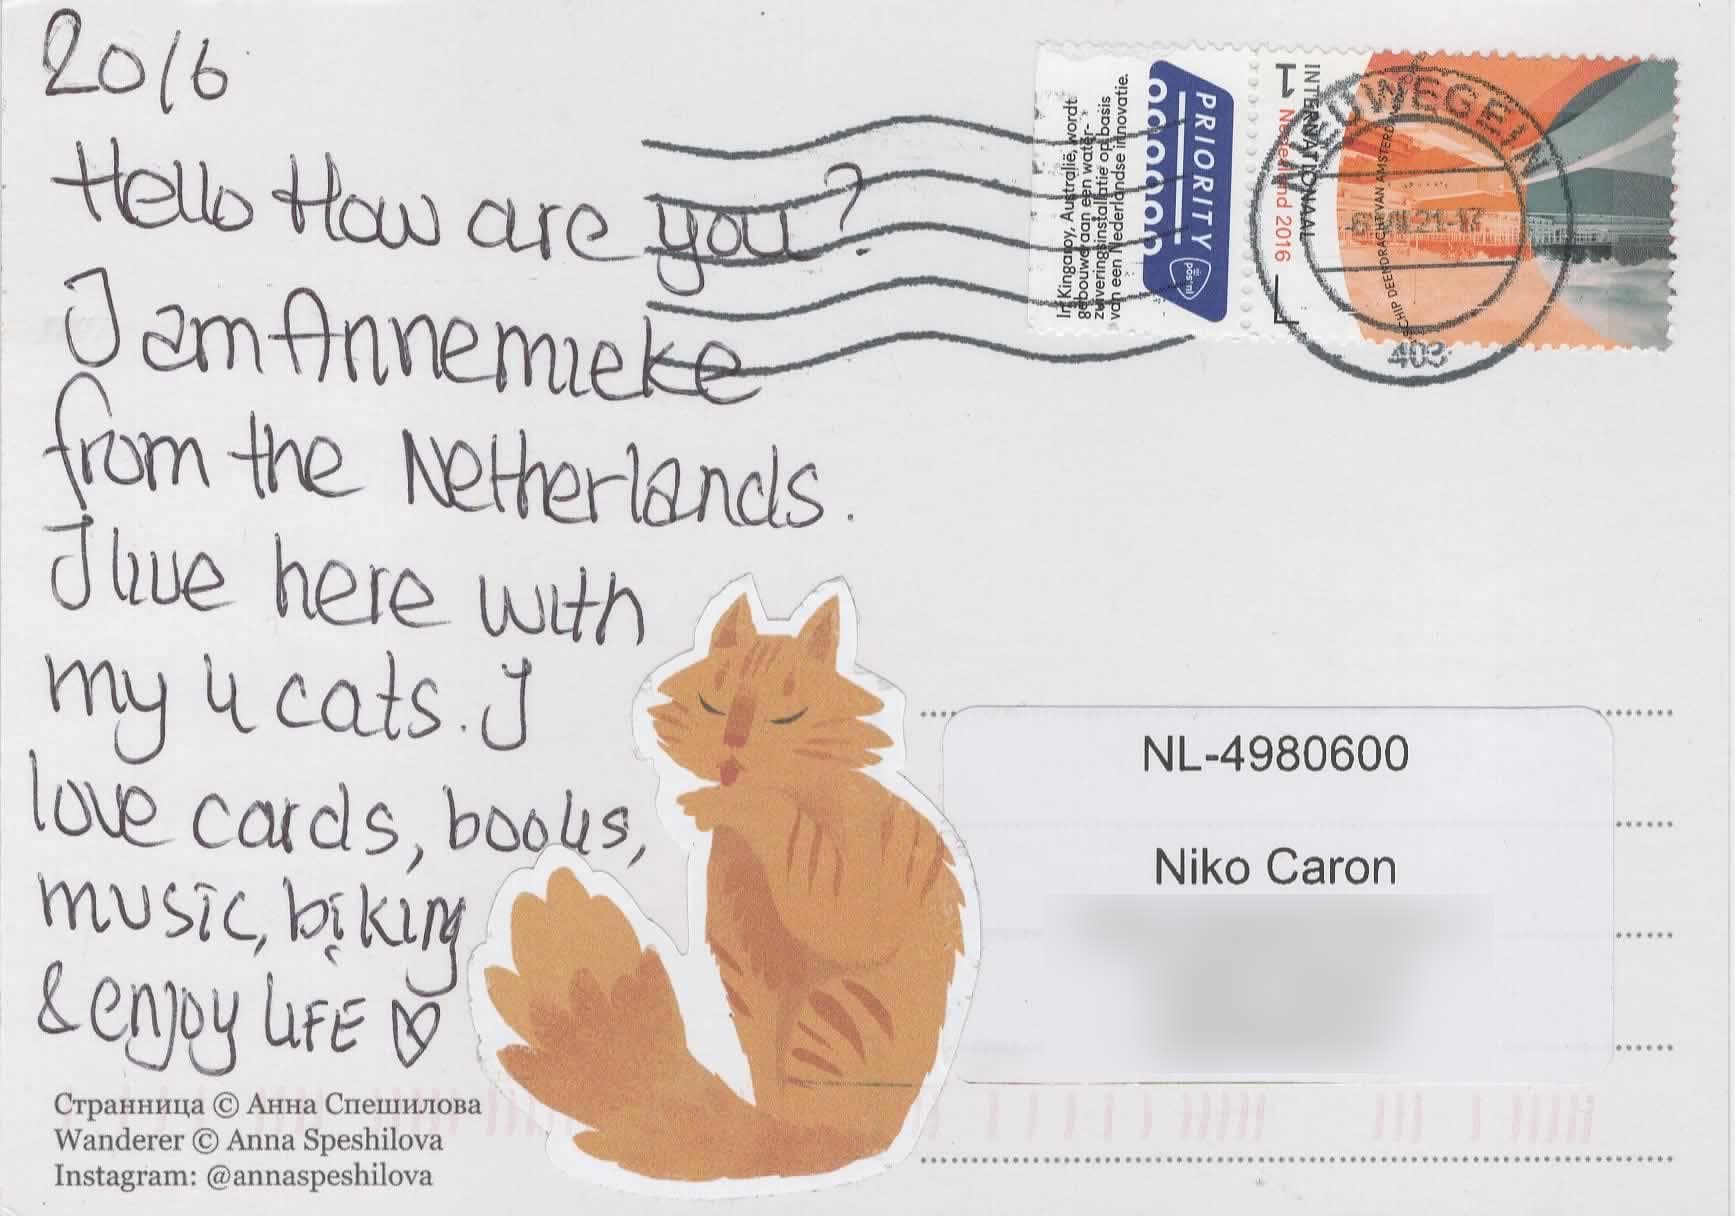 20/6
Hello How are you?
I am Annemieke
from the Netherlands.
I live here with
my 4 cats. I
love cards, books,
music, biking
& enjoy LIFE
Странница © Анна Спешилова
Wanderer © Anna Speshilova
Instagram: @annaspeshilova
In Kingaroy, Australië, wordt
gebouwd aan een water-
zuiveringsinstallatie op basis
van een Nederlandse innovatie.
PRIORITY
postnl
1
INTERNATIONAAL
Nederland 2016
403
NL-4980600
Niko Caron